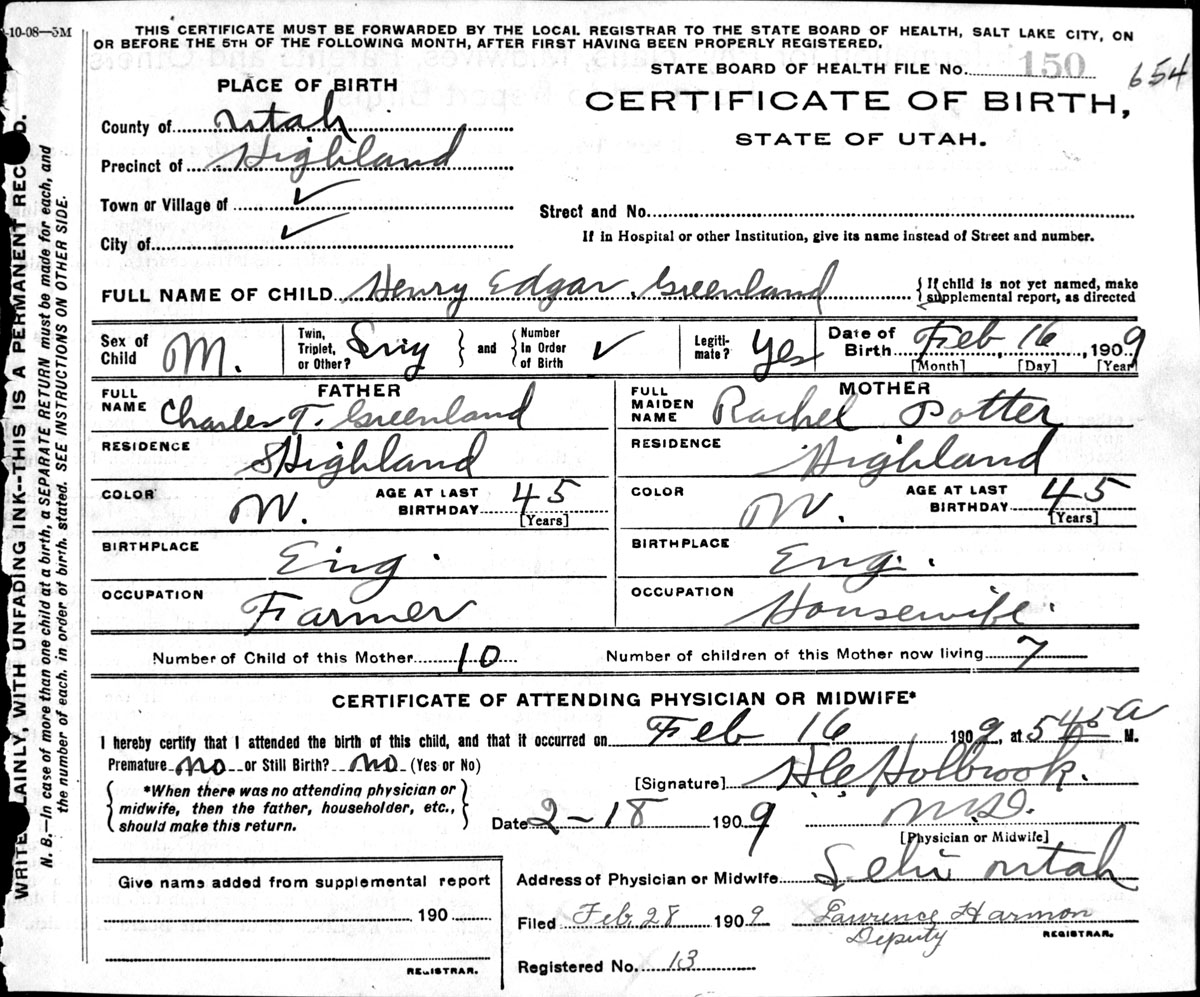 -10-08—5M
THIS CERTIFICATE MUST BE FORWARDED BY THE LOCAL REGISTRAR TO THE STATE BOARD OF HEALTH, SALT LAKE CITY, ON
OR BEFORE THE 5TH OF THE FOLLOWING MONTH, AFTER FIRST HAVING BEEN PROPERLY REGISTERED.
STATE BOARD OF HEALTH FILE No. 150 654
PLACE OF BIRTH
CERTIFICATE OF BIRTH,
STATE OF UTAH.
County of Utah
Precinct of Highland
Town or Village of ✓
City of ✓
Street and No.
If in Hospital or other Institution, give its name instead of Street and number.
FULL NAME OF CHILD Henry Edgar Greenland
{If child is not yet named, make
supplemental report, as directed
Sex of Child M.
Twin, Triplet, or Other? } and { Number In Order of Birth ✓
Legiti-mate? Yes
Date of Birth Feb, 16, 1909
[Month] [Day] [Year]
FATHER
FULL NAME Charles T. Greenland
RESIDENCE Highland
COLOR W. AGE AT LAST BIRTHDAY 45
[Years]
BIRTHPLACE Eng.
OCCUPATION Farmer
MOTHER
FULL MAIDEN NAME Rachel Potter
RESIDENCE Highland
COLOR W. AGE AT LAST BIRTHDAY 45
[Years]
BIRTHPLACE Eng.
OCCUPATION Housewife.
Number of Child of this Mother 10 Number of children of this Mother now living 7
CERTIFICATE OF ATTENDING PHYSICIAN OR MIDWIFE*
I hereby certify that I attended the birth of this child, and that it occurred on Feb 16 1909, at 5 45 a M.
Premature no or Still Birth? no (Yes or No)
[Signature] Holbrook.
{ *When there was no attending physician or
midwife, then the father, householder, etc.,
should make this return. }
Date 2-18 1909 M.D.
[Physician or Midwife]
Address of Physician or Midwife Lehi Utah
Filed Feb 28 1909 Lawrence Harmon
Deputy REGISTRAR.
Registered No. 13
Give name added from supplemental report
190
REGISTRAR.
WRITE PLAINLY, WITH UNFADING INK--THIS IS A PERMANENT RECORD.
N. B.—In case of more than one child at a birth, a SEPARATE RETURN must be made for each, and
the number of each, in order of birth, stated. SEE INSTRUCTIONS ON OTHER SIDE.